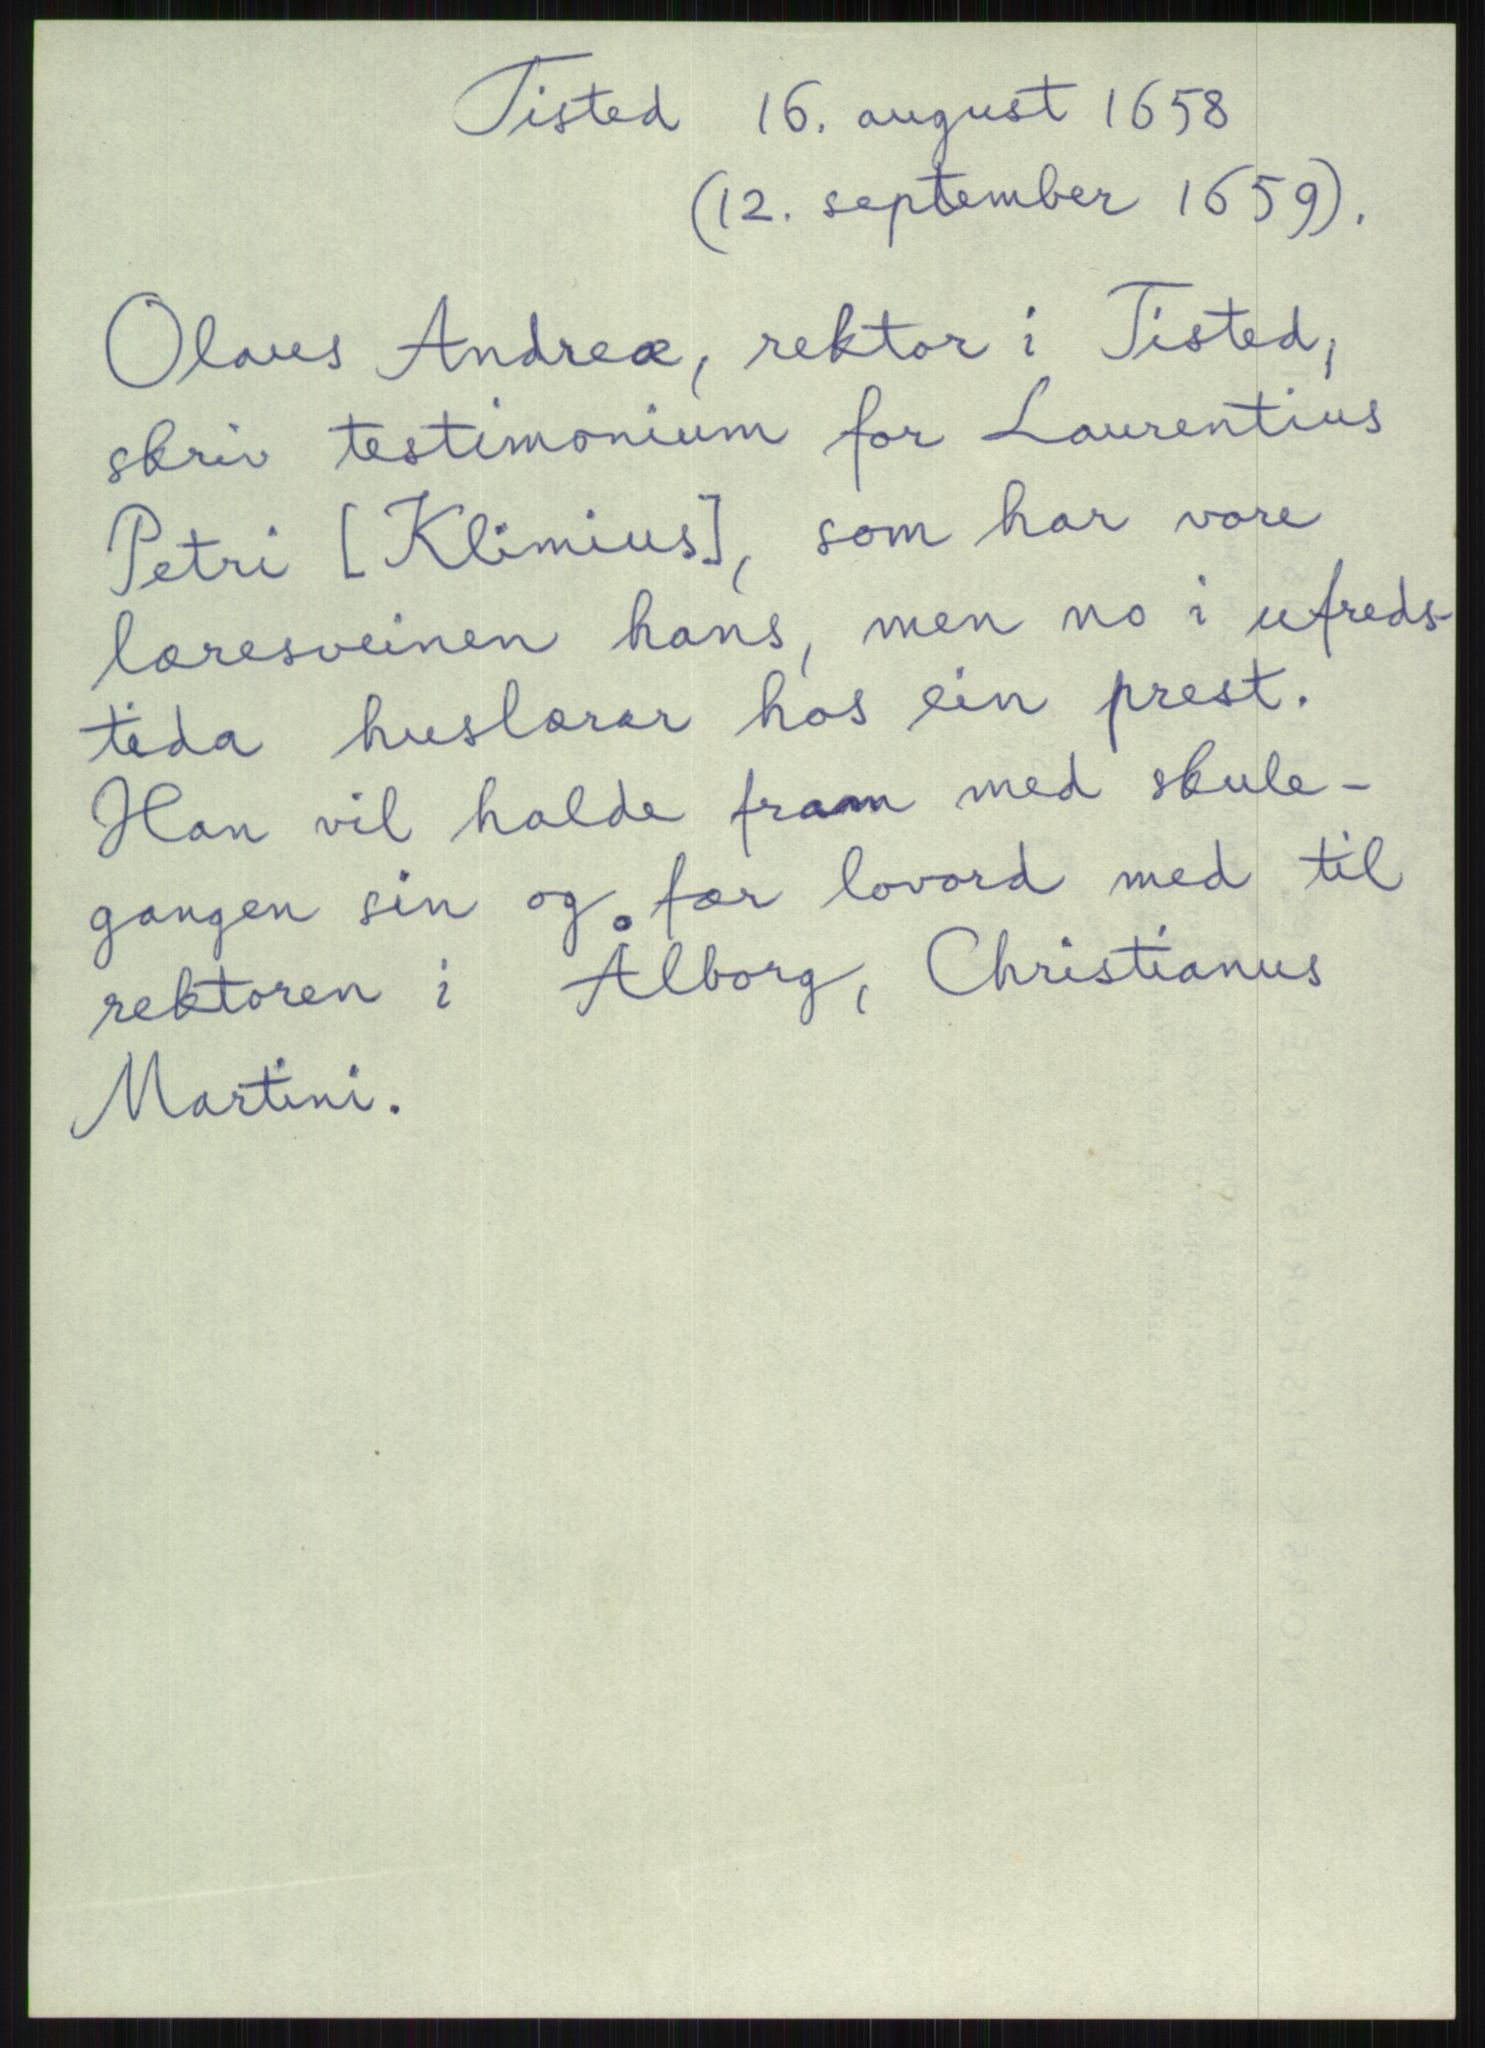 Tisted 16. august 1658
(12. september 1659).
Olaus Andreæ, rektor i Tisted,
skriv testimonium for Laurentius
Petri [Klimius], som har vore
læresveinen hans, men no i ufreds-
tida huslærar hos ein prest.
Han vil halde fram med skule-
gangen sin og fær lovord med til
rektoren i Ålborg, Christianus
Martini.